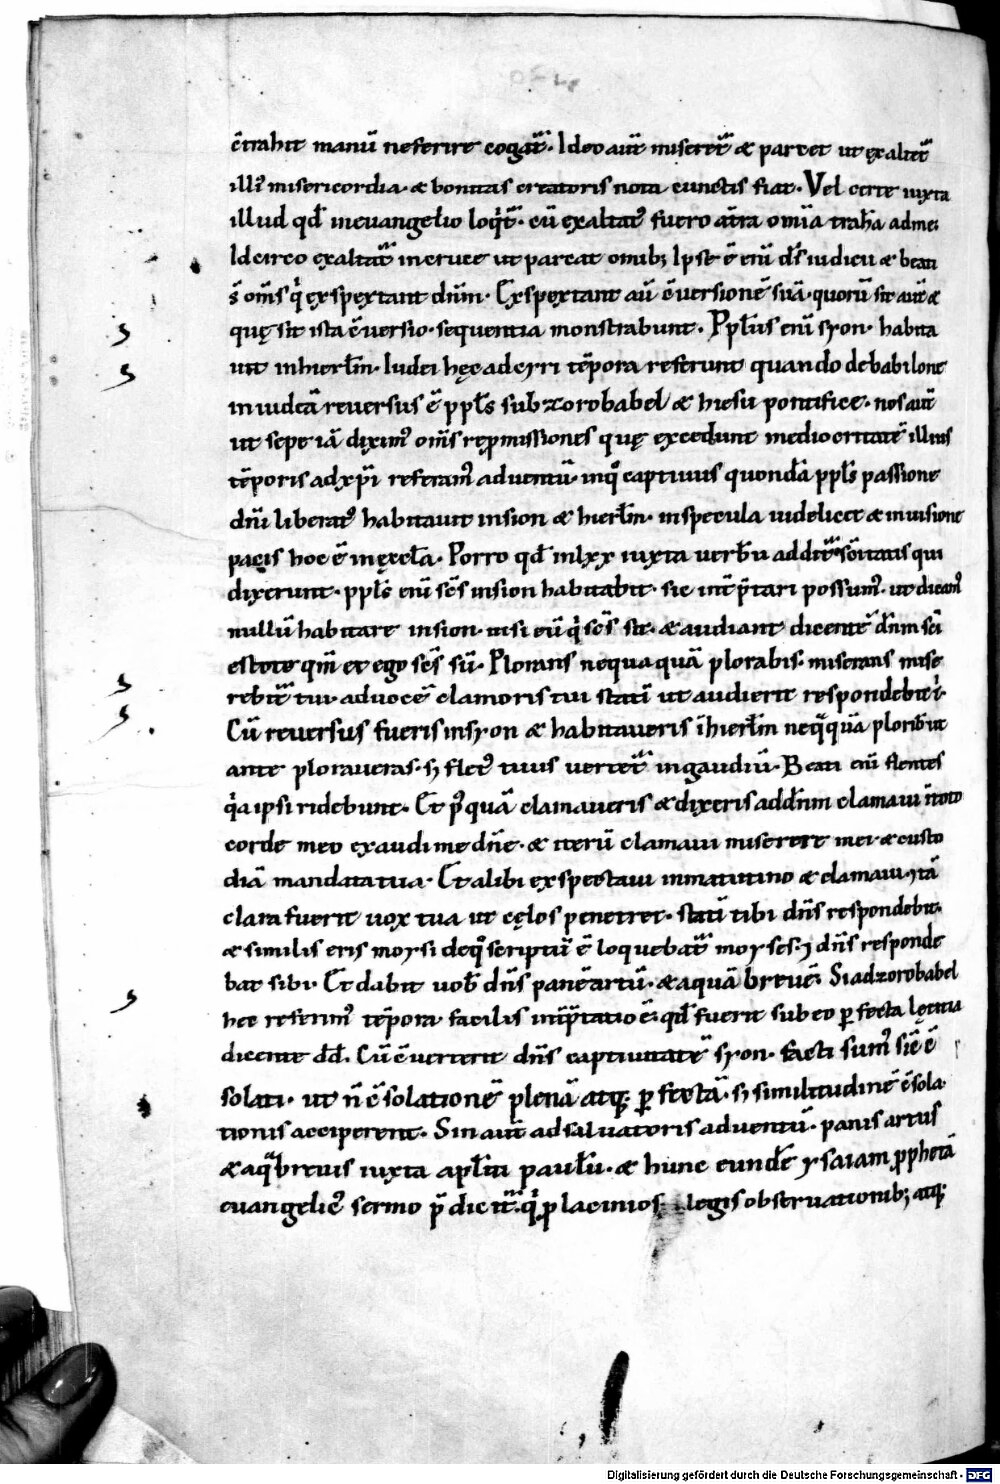 c̄trahit manū ne ferire cogat᷑. Ideo aut̄ miseret᷑ & parcet ut ęxaltet᷑
illi᷒ misericordia. & bonitas creatoris nota cunctis fiat. Vel certe iuxta
illud qd̄ in euangelio loqt᷑. cū exaltat᷒ fuero at̄ra om̄ia traha ad me.
Idcirco exaltat᷑ in cruce ut parcat omib; Ipse ē enī ds̄ iudicii & beati
s̄ om̄s qi exspextant dn̄m. Exspęxtant aū c̄uersionē suā. quorū sit aut̄ &
quę sit ista c̄uersio. sequentia monstrabunt. Pplus enī syon. habita
uit in hierlm̄. Iudei hęc ad cyri tēpora referunt quando de babilone
in iudeā reuersus ē ppls̄ sub zorobabel & hiesu pontifice. nos aut̄
ut sepe iā diximus om̄s rep̄missiones quę excedunt mediocritatē illius
tēporis ad xp̄i referam᷒ aduentū. in qo captiuus quondā ppls̄ passione
dn̄i liberat᷒ habitauit in sion & hierlm̄. in specula uidelicet & in uisione
pacis hoc ē in ęccla. Porro qd̄ in lxx iuxta uerbū addit᷑ sc̄itatis qui
dixerunt. ppls̄ enī sc̄s in sion habitabit. sic int̄p̄tari possum᷒. ut dicam᷒
nullū habitare in sion. nisi eū qi sc̄s sit. & audiant dicentē dn̄m sc̄i
estote qm̄ et ego sc̄s sū. Plorans nequaquā plorabis. miserans mise
rebit᷑ tui. ad uocē clamoris tui statī ut audierit respondebit t̄.
Cū reuersus fueris in syon & habitaueris ī hierlm̄ neqqua plorabit
ante ploraueras. s; flet᷒ tuus uertet᷑ in gaudiū. Beati enī flentes
qa ipsi ridebunt. Et p᷒quā clamaueris & dixeris ad dn̄m clamaui ī toto
corde meo exaudi me dn̄e. & iterū clamaui miserere mei. & custo
diā mandata tua. Et alibi exspectaui in matutino & clamaui. & tā
clara fuerit uox tua ut cęlos penetret. statī tibi dn̄s respondebit.
& similis eris moysi de qo scriptū ē loquebat᷑ moyses. & dn̄s responde
bat sibi. Et dabit uob̄ dn̄s panē artū. & aquā breuē. Si ad zorobabel
hec referim᷒ tēpora. facilis int̄p̄tatio ē. qd̄ fuerit sub eo pfecta lętitia
dicente dd̄. Cū c̄uerterit dn̄s captiuitatē syon. facti sum᷒ sic̄ c̄
solati. ut n̄ c̄solationē plenā atq; pfectā. s; similitudinē c̄sola
tionis acciperent. Sin aut̄ ad saluatoris aduentū. panis artus
& aqa breuis iuxta aplm̄ paulū. & hunc eundē ysaiam pphetā
euangelic᷒ sermo p̄dicit᷑. qi p lacinios legis obseruationib; atq;
Digitalisierung gefördert durch die Deutsche Forschungsgemeinschaft - DFG